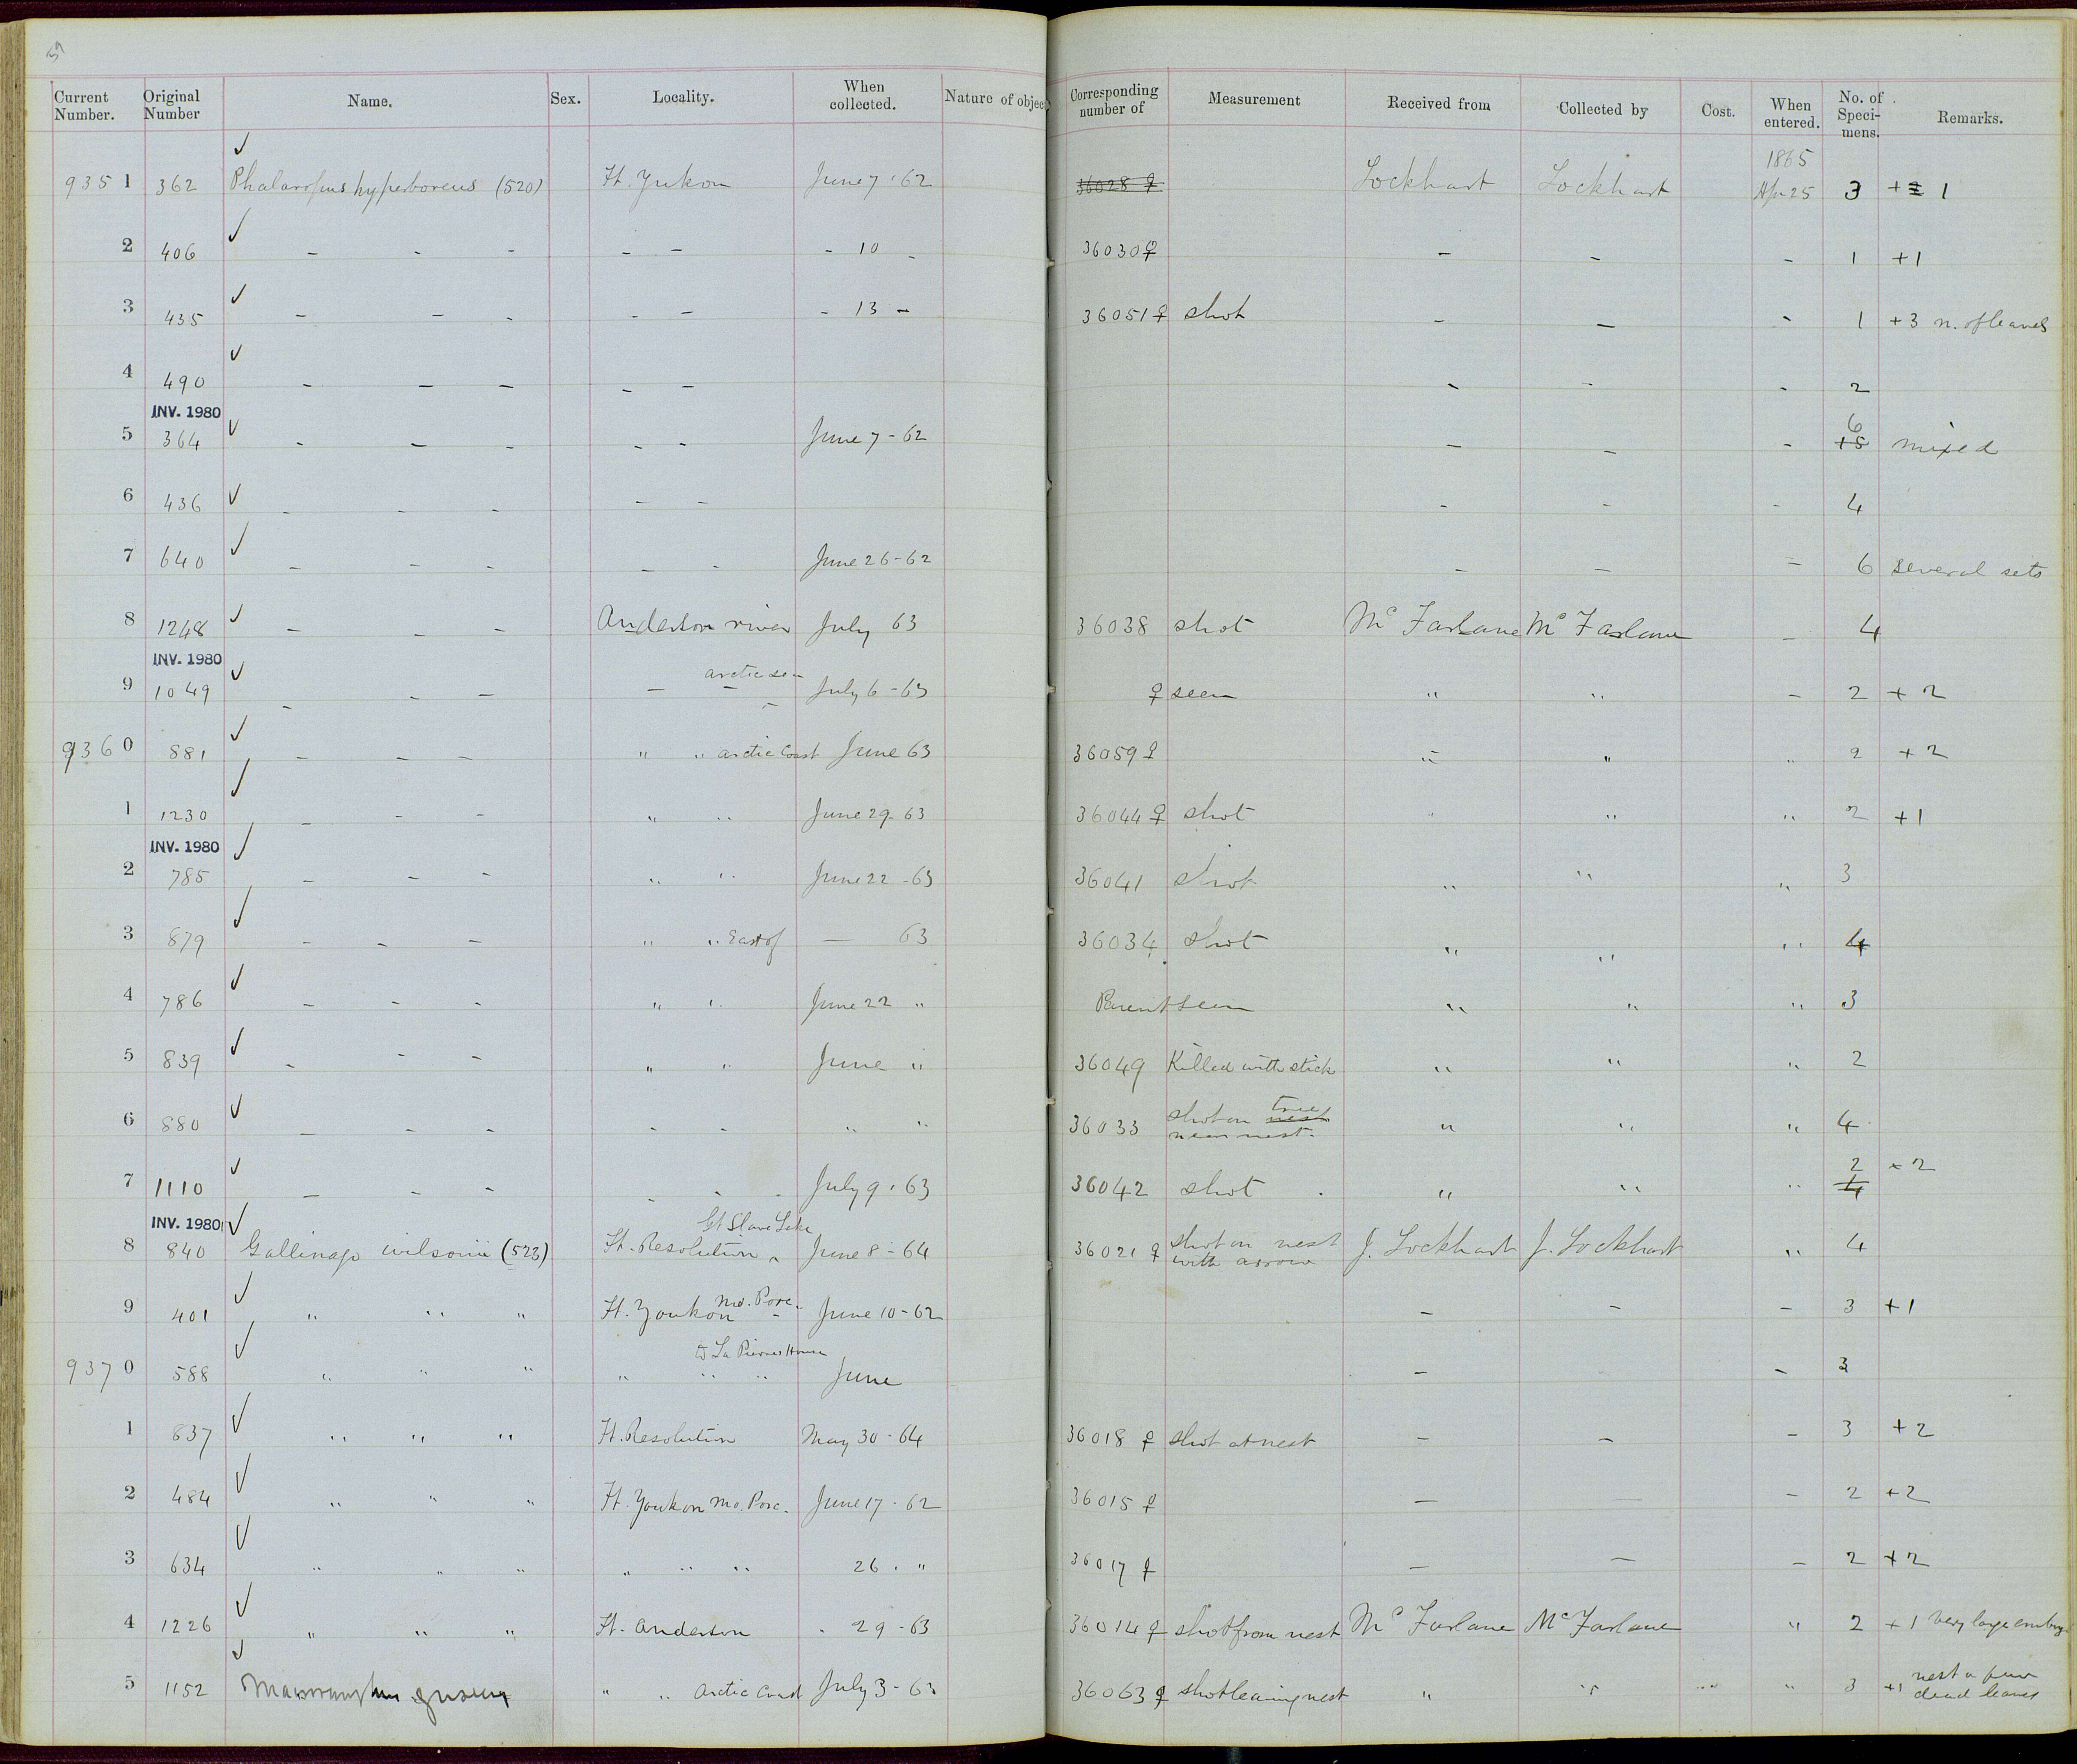 Current Number. Original Number Name. Sex. Locality. When collected. Nature of object Corresponding number of Measurement Received from Collected by Cost. When entered. No. of Specimens. Remarks.
1865
9351 362 Phalaropus hyperboreus (520) Ft. Yukon June 7 · 62 36028 ♀ Lockhart Lockhart Apr 25 3 + 1
2 406 - - - - - - 10 - 36030 ♀ - - - 1 +1
3 435 - - - - - - 13 - 36051 ♀ shot - - - 1 +3 n. of leaves
4 490 - - - - - - - - 2
INV. 1980
5 364 - - - - - June 7 - 62 - - - 6 +5 mixed
6 436 - - - - - - - - 4
7 640 - - - - - June 26 - 62 - - - 6 several sets
8 1248 - - - Anderson river July 63 36038 shot Mc Farlane Mc Farlane - 4
INV. 1980
9 1049 - - - - - arctic sea July 6 - 63 ♀ seen " " - 2 + 2
9360 881 - - - " " arctic Coast June 63 36059 ♀ " " " 2 + 2
1 1230 - - - " " June 29 - 63 36044 ♀ shot " " " 2 +1
INV. 1980
2 785 - - - " " June 22 - 63 36041 shot " " " 3
3 879 - - - " " East of — 63 36034 shot " " " 4
4 786 - - - " " June 22 " Parent seen " " " 3
5 839 - - - " " June " 36049 Killed with stick " " " 2
6 880 - - - - - " " 36033 shot on nest tree near nest. " " " 4
7 1110 - - - - - - July 9 · 63 36042 shot " " " 4 2 + 2
INV. 1980
8 840 Gallinago wilsonii (523) Ft. Resolution Gt Slave Lake June 8 - 64 36021 ♀ shot on nest with arrow J. Lockhart J. Lockhart " 4
9 401 " " " Ft. Youkon Mo. Porc. June 10 - 62 - - - 3 +1
9370 588 " " " " " " La Pierres House June - - 3
1 837 " " " Ft. Resolution May 30 - 64 36018 ♀ shot at nest - - - 3 +2
2 484 " " " Ft. Youkon Mo. Porc. June 17 - 62 36015 ♀ - - - 2 +2
3 634 " " " " " " 26 . " 36017 ♀ - - - 2 +2
4 1226 " " " Ft. Anderson " 29 - 63 36014 ♀ shot from nest Mc Farlane Mc Farlane " 2 +1 very large
5 1152 " " Arctic Coast July 3 - 63 36063 ♀ shot leaving nest " " " " 3 +1 nest a few dead leaves